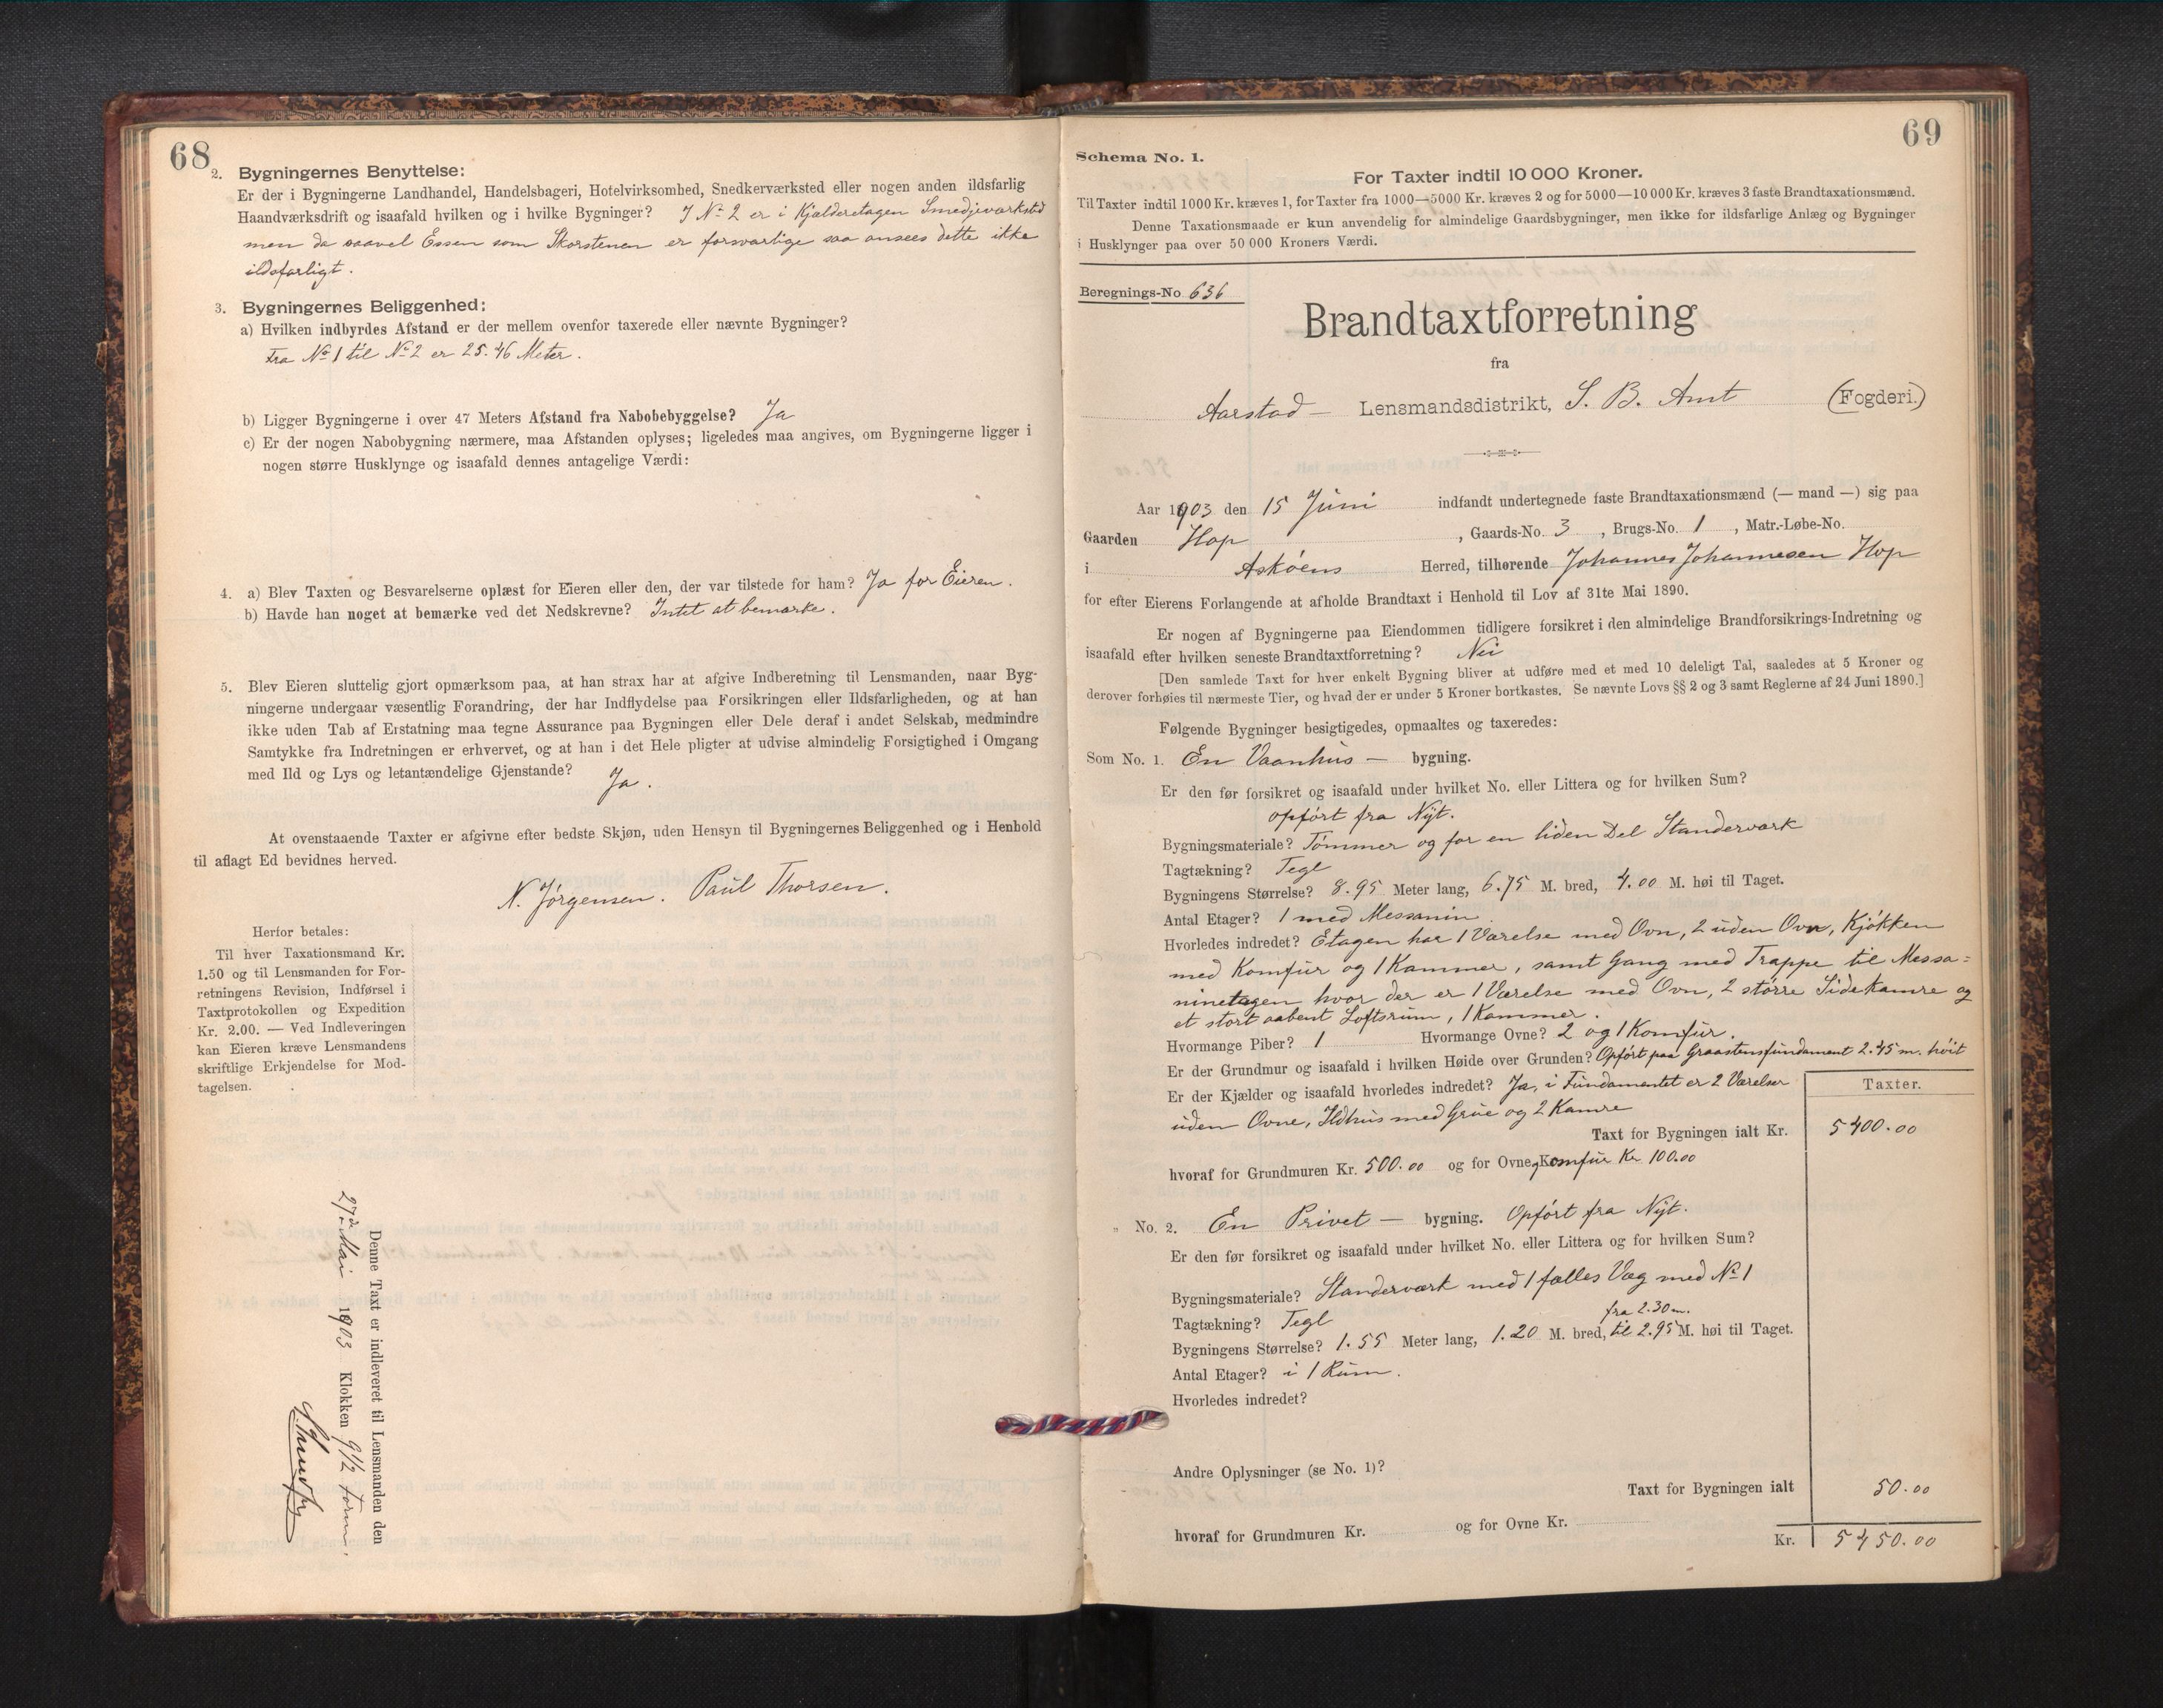 68
2. Bygningernes Benyttelse:
Er der i Bygningerne Landhandel, Handelsbageri, Hotelvirksomhed, Snedkerværksted eller nogen anden ildsfarlig
Haandværksdrift og isaafald hvilken og i hvilke Bygninger? I No 2 er i Kjælderetagen Smedjeværksted
men da saavel Essen som Skorstenen er forsvarlige saa ansees dette ikke
ildsfarligt.
3. Bygningernes Beliggenhed:
a) Hvilken indbyrdes Afstand er der mellem ovenfor taxerede eller nævnte Bygninger?
Fra No 1 til No 2 er 25.46 Meter.
b) Ligger Bygningerne i over 47 Meters Afstand fra Nabobebyggelse? Ja
c) Er der nogen Nabobygning nærmere, maa Afstanden oplyses; ligeledes maa angives, om Bygningerne ligger i
nogen større Husklynge og isaafald dennes antagelige Værdi:
4. a) Blev Taxten og Besvarelserne oplæst for Eieren eller den, der var tilstede for ham? Ja for Eieren.
b) Havde han noget at bemærke ved det Nedskrevne? Intet at bemærke.
5. Blev Eieren sluttelig gjort opmærksom paa, at han strax har at afgive Indberetning til Lensmanden, naar Byg-
ningerne undergaar væsentlig Forandring, der har Indflydelse paa Forsikringen eller Ildsfarligheden, og at han
ikke uden Tab af Erstatning maa tegne Assurance paa Bygningen eller Dele deraf i andet Selskab, medmindre
Samtykke fra Indretningen er erhvervet, og at han i det Hele pligter at udvise almindelig Forsigtighed i Omgang
med Ild og Lys og letantændelige Gjenstande? Ja.
At ovenstaaende Taxter er afgivne efter bedste Skjøn, uden Hensyn til Bygningernes Beliggenhed og i Henhold
til aflagt Ed bevidnes herved.
N. Jørgensen. Paul Thorsen.
Herfor betales:
Til hver Taxationsmand Kr.
1.50 og til Lensmanden for For-
retningens Revision, Indførsel i
Taxtprotokollen og Expedition
Kr. 2.00. — Ved Indleveringen
kan Eieren kræve Lensmandens
skriftlige Erkjendelse for Mod-
tagelsen.
Denne Taxt er indleveret til Lensmanden den
27de Mai 1903 Klokken 9 1/2 Form.
69
Schema No. 1.
For Taxter indtil 10 000 Kroner.
Til Taxter indtil 1000 Kr. kræves 1, for Taxter fra 1000—5000 Kr. kræves 2 og for 5000—10 000 Kr. kræves 3 faste Brandtaxationsmænd.
Denne Taxationsmaade er kun anvendelig for almindelige Gaardsbygninger, men ikke for ildsfarlige Anlæg og Bygninger
i Husklynger paa over 50 000 Kroners Værdi.
Beregnings-No 636
Brandtaxtforretning
fra
Aarstad — Lensmandsdistrikt, S. B. Amt (Fogderi.)
Aar 1903 den 15 Juni indfandt undertegnede faste Brandtaxationsmænd (— mand —) sig paa
Gaarden Hop, Gaards-No. 3, Brugs-No. 1, Matr.-Løbe-No.
i Askøens Herred, tilhørende Johannes Johannesen Hop
for efter Eierens Forlangende at afholde Brandtaxt i Henhold til Lov af 31te Mai 1890.
Er nogen af Bygningerne paa Eiendommen tidligere forsikret i den almindelige Brandforsikrings-Indretning og
isaafald efter hvilken seneste Brandtaxtforretning? Nei
[Den samlede Taxt for hver enkelt Bygning bliver at udføre med et med 10 deleligt Tal, saaledes at 5 Kroner og
derover forhøies til nærmeste Tier, og hvad der er under 5 Kroner bortkastes. Se nævnte Lovs §§ 2 og 3 samt Reglerne af 24 Juni 1890.]
Følgende Bygninger besigtigedes, opmaaltes og taxeredes:
Som No. 1. En Vaanhus — bygning.
Er den før forsikret og isaafald under hvilket No. eller Littera og for hvilken Sum?
opført fra Nyt.
Bygningsmateriale? Tømmer og for en liden Del Standerværk
Tagtækning? Tegl
Bygningens Størrelse? 8.95 Meter lang, 6.75 M. bred, 4.00 M. høi til Taget.
Antal Etager? 1 med Messanin.
Hvorledes indredet? Etagen har 1 Værelse med Ovn, 2 uden Ovn, Kjøkken
med Komfur og 1 Kammer, samt Gang med Trappe til Messa=
ninetagen hvor der er 1 Værelse med Ovn, 2 større Sidekamre og
et stort aabent Loftsrum, 1 Kammer.
Hvormange Piber? 1 Hvormange Ovne? 2 og 1 Komfur.
Er der Grundmur og isaafald i hvilken Høide over Grunden? Opført paa Graastensfundament 2.45 m. høit
Er der Kjælder og isaafald hvorledes indredet? Ja, i Fundamentet er 2 Værelser
uden Ovne, Ildhus med Grue og 2 Kamre
Taxter.
Taxt for Bygningen ialt Kr. 5400.00
hvoraf for Grundmuren Kr. 500.00 og for Ovne, Komfur Kr. 100.00
" No. 2. En Privet — bygning. Opført fra Nyt.
Er den før forsikret og isaafald under hvilket No. eller Littera og for hvilken Sum?
Bygningsmateriale? Standerværk med 1 fælles Væg med No 1
Tagtækning? Tegl
fra 2.30 m.
Bygningens Størrelse? 1.55 Meter lang, 1.20 M. bred, til 2.95 M. høi til Taget.
Antal Etager? i 1 Rum.
Hvorledes indredet?
Andre Oplysninger (se No. 1)?
Taxt for Bygningen ialt 50.00
hvoraf for Grundmuren Kr. og for Ovne Kr.
Kr. 5450.00